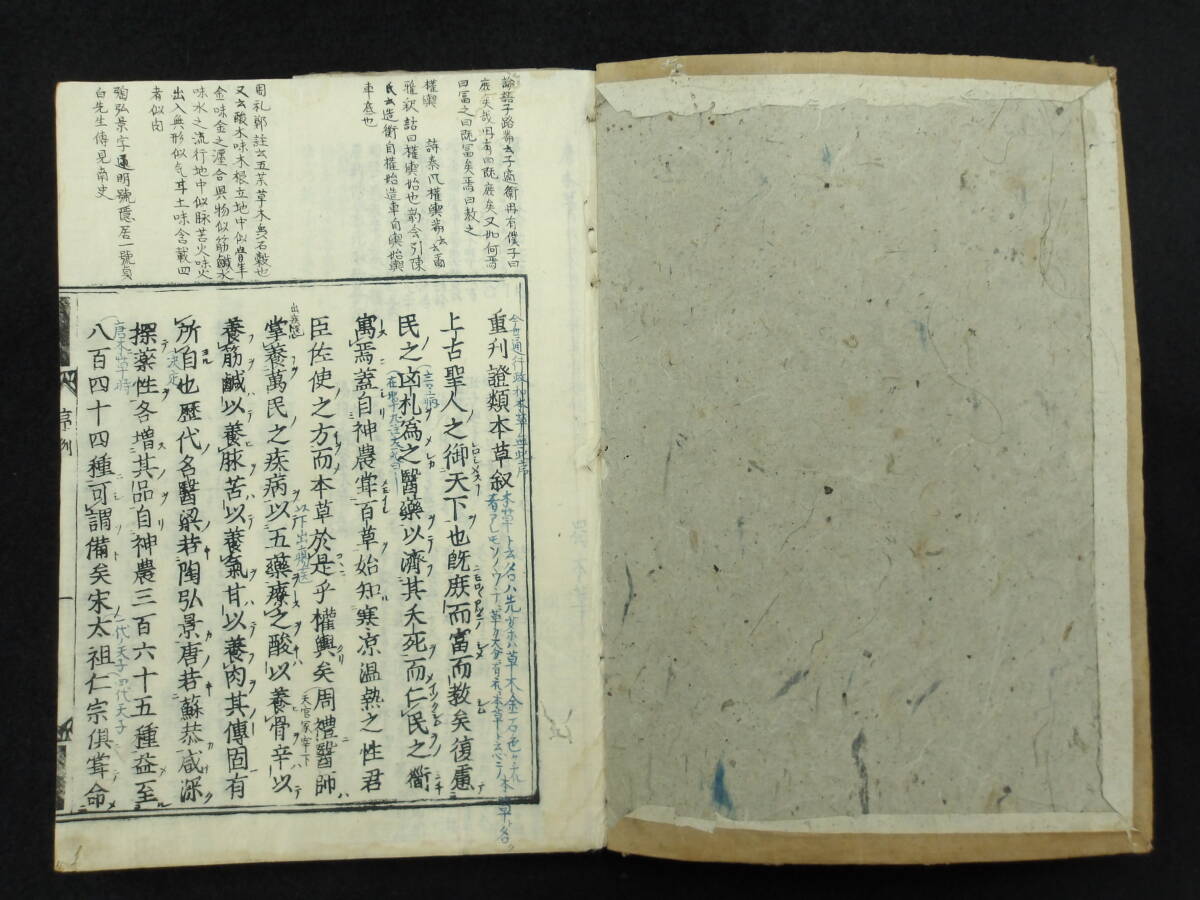 論語子路篇云子適衛冉有僕子曰
庶矣哉冉有曰既庶矣又如何焉
曰富之曰既富矣焉曰教之
權輿　詩秦風權輿篇云
雅釈詁曰權輿始也韵会引陳
氏云造衡自權始造車自輿始輿
車底也
周礼鄭註云五薬草木虫石穀也
又云酸木味木根立地中似骨辛
金味金之纏合異物似筋鹹水
味水之流行地中似脉苦火味火
出入無形似气甘土味含載四
者似肉
陶弘景字通明號隱居一號貞
白先生傳見南史
重刊證類本草叙
今世通行政和本草無此序
上古聖人之御天下也既庶而富而教矣復慮
民之凶札為之醫藥以濟其夭死而仁民之術
寓焉蓋自神農甞百草始知寒凉温熱之性君
臣佐使之方而本草於是乎權輿矣周禮醫師
天官冢宰下
掌養萬民之疾病以五藥療之酸以養骨辛以
出疾醫
以下出瘍医
養筋鹹以養脉苦以養氣甘以養肉其傳固有
所自也歷代名醫梁若陶弘景唐若蘇恭咸深
決定
探藥性各增其品自神農三百六十五種益至
唐本草時
八百四十四種可謂備矣宋太祖仁宗俱甞命
一代ノ天子
四代天子
序例
一